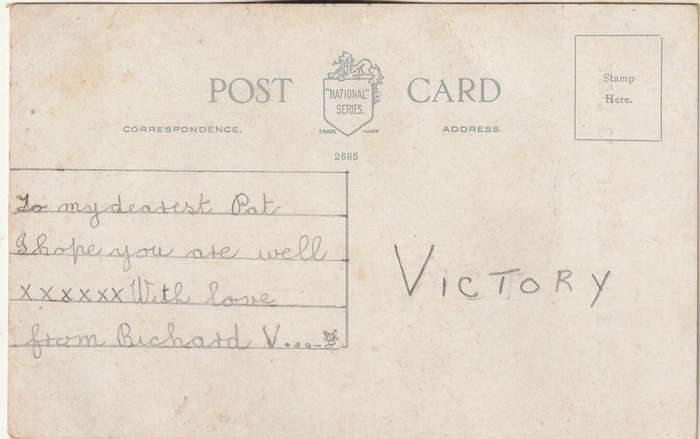 POST CARD
"NATIONAL"
SERIES.
TRADE MARK
CORRESPONDENCE.
ADDRESS.
2685
Stamp
Here.
To my dearest Pat
I hope you are well
xxxxxx With love
from Richard V...-
VICTORY